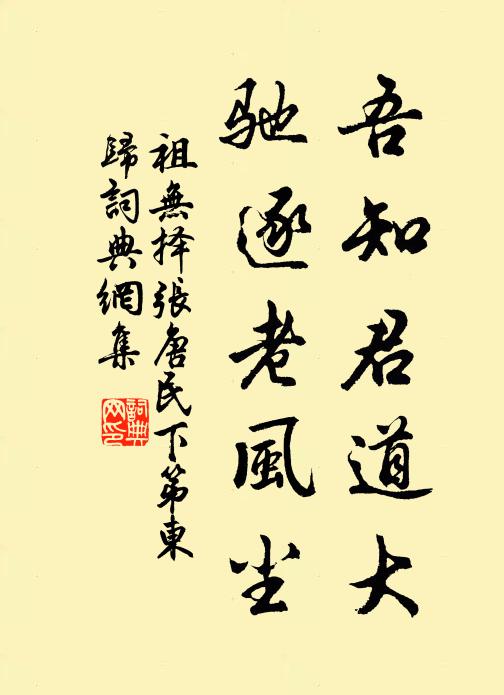 吾知君道大
驰逐老風尘
祖無择張唐民下第東
歸詞典網集
詞典網印